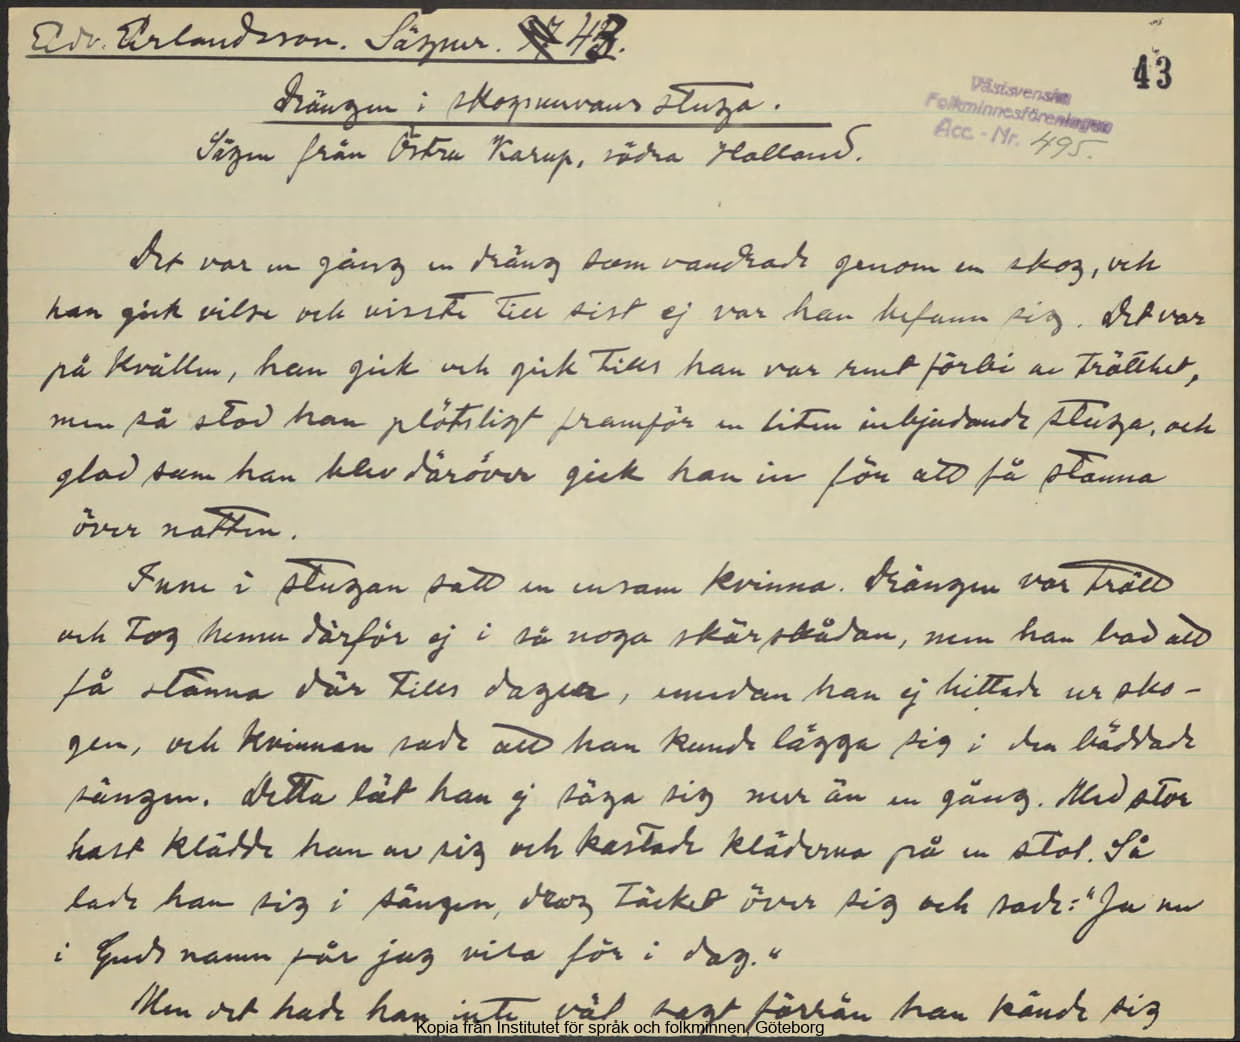 Edv. Erlandsson. Sägner. 43.
43
Västsvenska
Folkminnesföreningen
Acc. - Nr. 495.
Drängen i skogsnuvans stuga.
Sägen från Östra Karup, södra Halland.
Det var en gång en dräng som vandrade genom en skog, och
han gick vilse och visste till sist ej var han befann sig. Det var
på kvällen, han gick och gick tills han var rent förbi av trötthet,
men så stod han plötsligt framför en liten inbjudande stuga, och
glad som han blev däröver gick han in för att få stanna
över natten.
Inne i stugan satt en ensam kvinna. Drängen var trött
och tog henne därför ej i så noga skärskådan, men han bad att
få stanna där tills dagen, emedan han ej hittade ur sko-
gen, och kvinnan sade att han kunde lägga sig i den bäddade
sängen. Detta lät han ej säga sig mer än en gång. Med stor
hast klädde han av sig och kastade kläderna på en stol. Så
lade han sig i sängen, drog täcket över sig och sade: "Ja nu
i Guds namn får jag vila för i dag."
Men det hade han inte väl sagt förrän han kände sig
Kopia från Institutet för språk och folkminnen, Göteborg